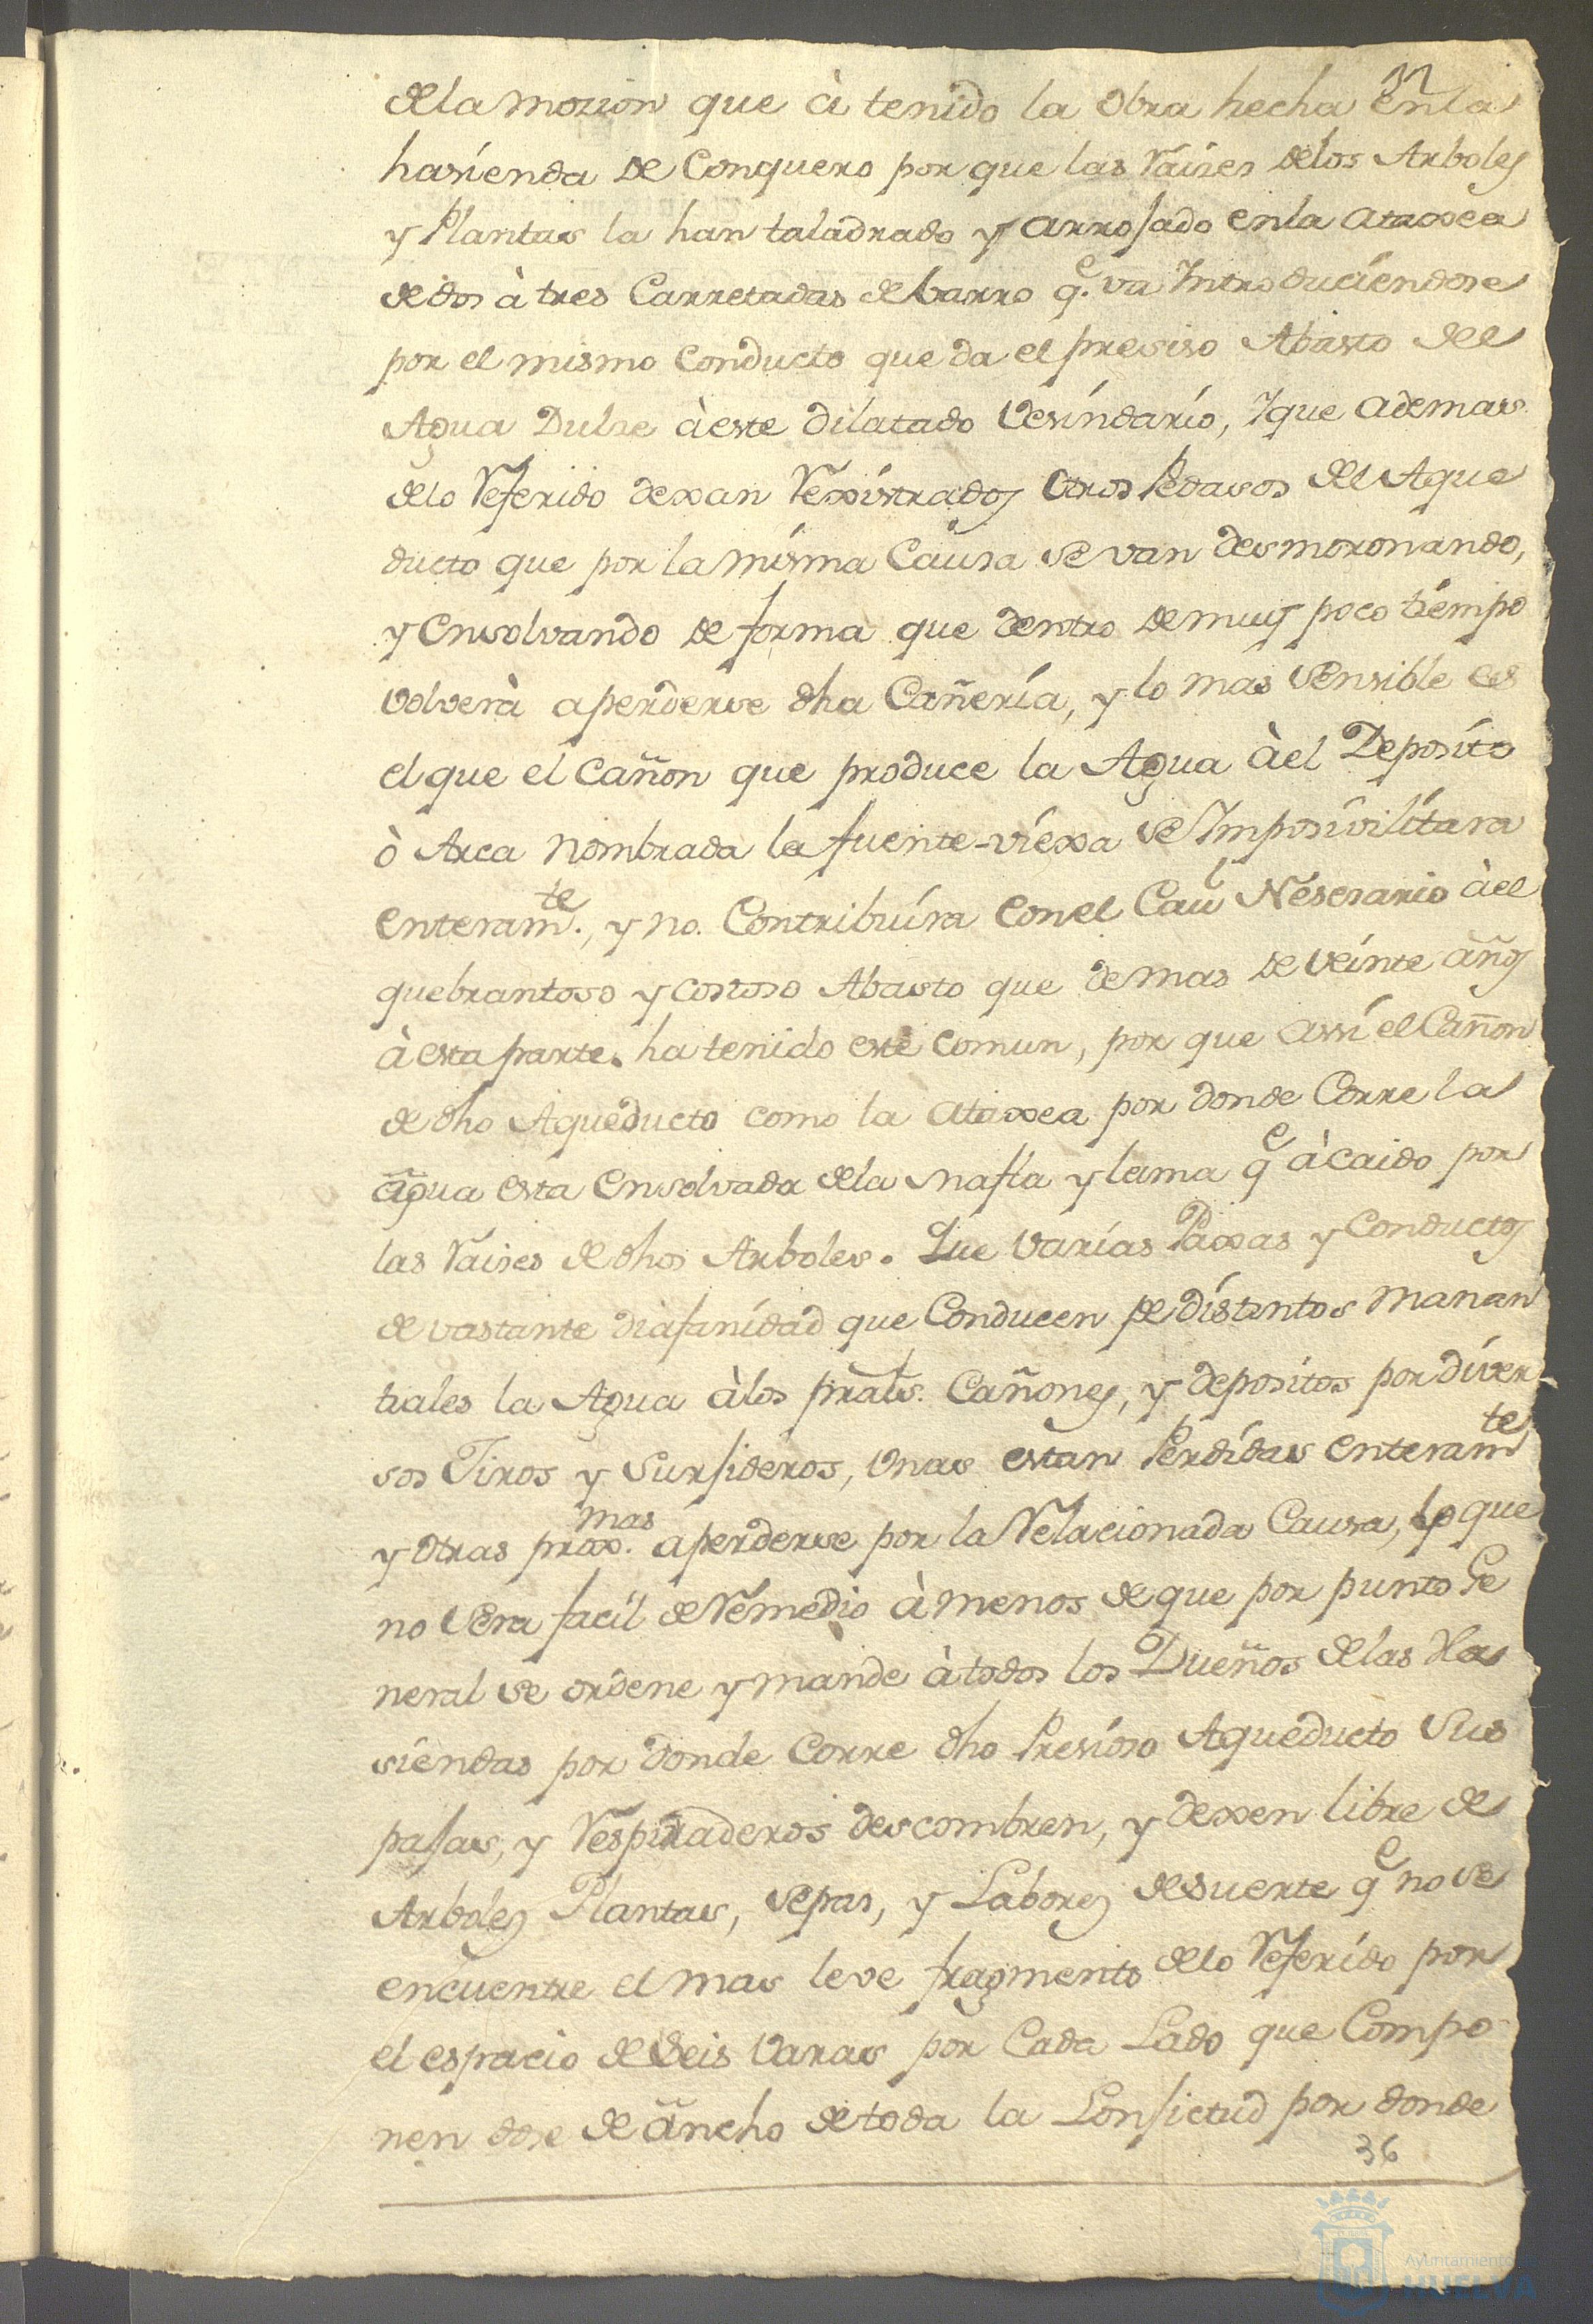 dela mozion que à tenido la Obra hecha enla
hasienda de Conquero por que las Raises delos Arboles
y Plantas la han taladrado y arrojado enla ataxea
de dos à tres Carretadas de barro q.e va Introduciendose
por el mismo Conducto que da el presiso Abasto del
Agua Dulse à este dilatado Vesindario, Y que ademas
delo Referido dexan Rexistrados Otros Pedasos del Aque
ducto que por la misma Causa se van desmoronando,
y Ensolvando de forma que dentro de muy poco tiempo
volverà a perderse dha Cañeria, y lo mas Sensible es
el que el Cañon que produce la Agua àel Deposito
ò Arca nombrada la fuente-viexa se Imposivilitara
enteram.te, y no. Contribuira Con el Cau.l Nesesario àel
quebrantoso y costoso Abasto que de mas de veinte años
à esta parte. ha tenido este Comun, por que assi el Cañon
de dho Aqueducto como la ataxea por donde Corre la
agua esta Ensolvada dela Masla y lama q.e à caido por
las Raises de dhos Arboles. Que varias Paxas y Conductos
de vastante diafanidad que Conducen de distintos Manan
tiales la Agua à los prals. Cañones, y depositos por diver
sos Tiros y Surjideros, Unas estan Perdidas enteram.te
y otras prox.mas a perderse por la Relacionada Causa, lo que
no sera facil de Remedio à menos de que por punto Ge
neral se ordene y mande à todos los Dueños delas Ha
siendas por donde Corre dho Presioso Aqueducto Sus
pajas, y Respiraderos descombren, y dexen libre de
Arboles Plantas, sepas, y Labores desuerte q.e no se
encuentre el mas leve fragmento delo Referido por
el espacio de Seis Varas por Cada Lado que Compo
nen dose de ancho de toda la Lonjictud por donde
36
Ayuntamiento de
HUELVA